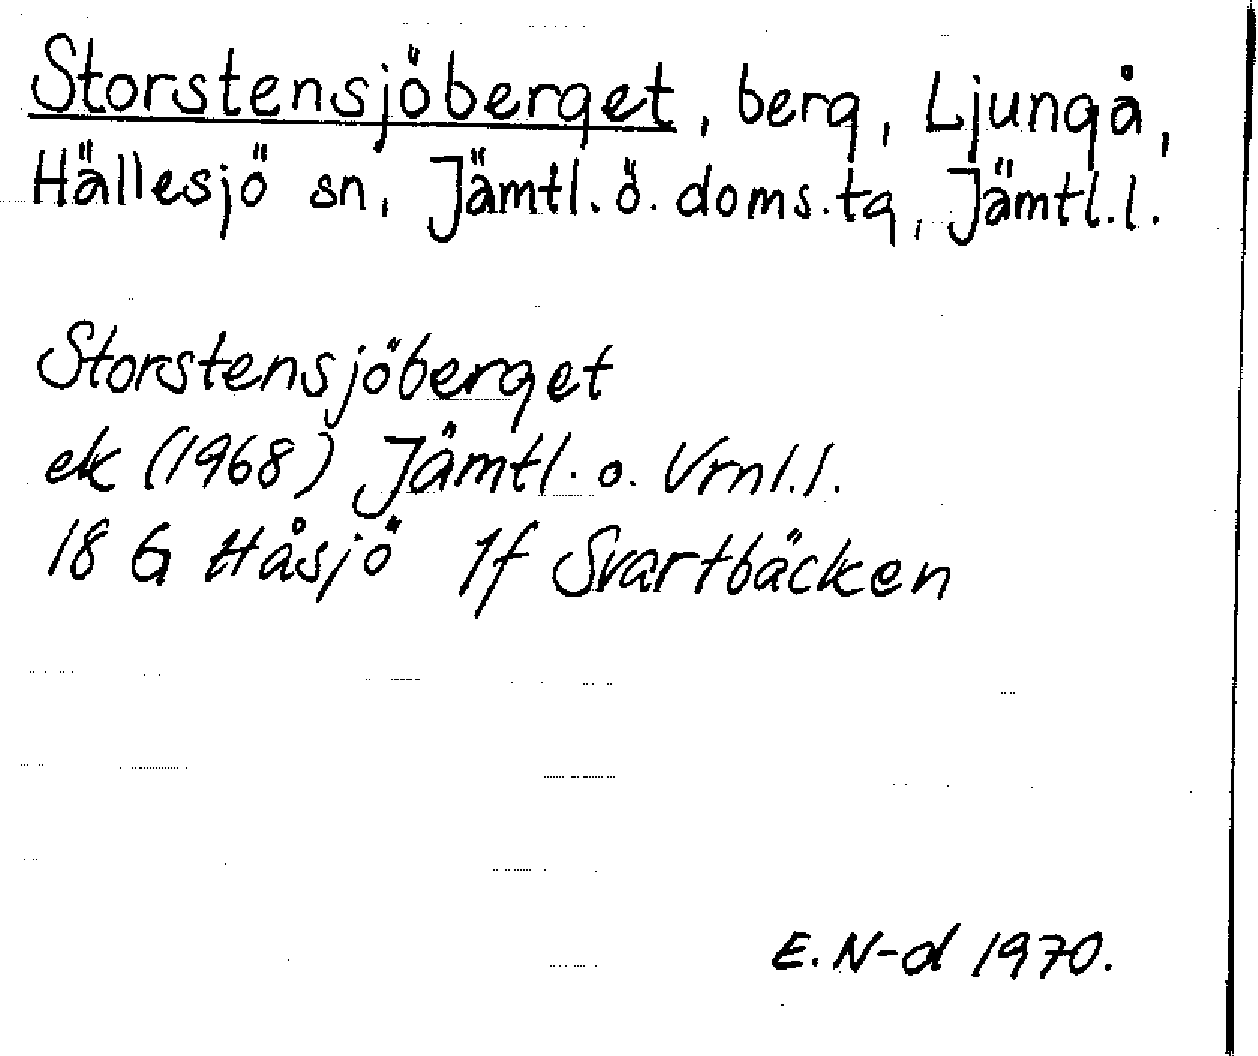 Storstensjöberget, berg, Ljungå,
Hällesjö sn, Jämtl. ö. doms.tg, Jämtl.l.
Storstensjöberget
ek (1968) Jämtl. o. Vrnl.l.
18 G Håsjö 1f Svartbäcken
E. N-d 1970.